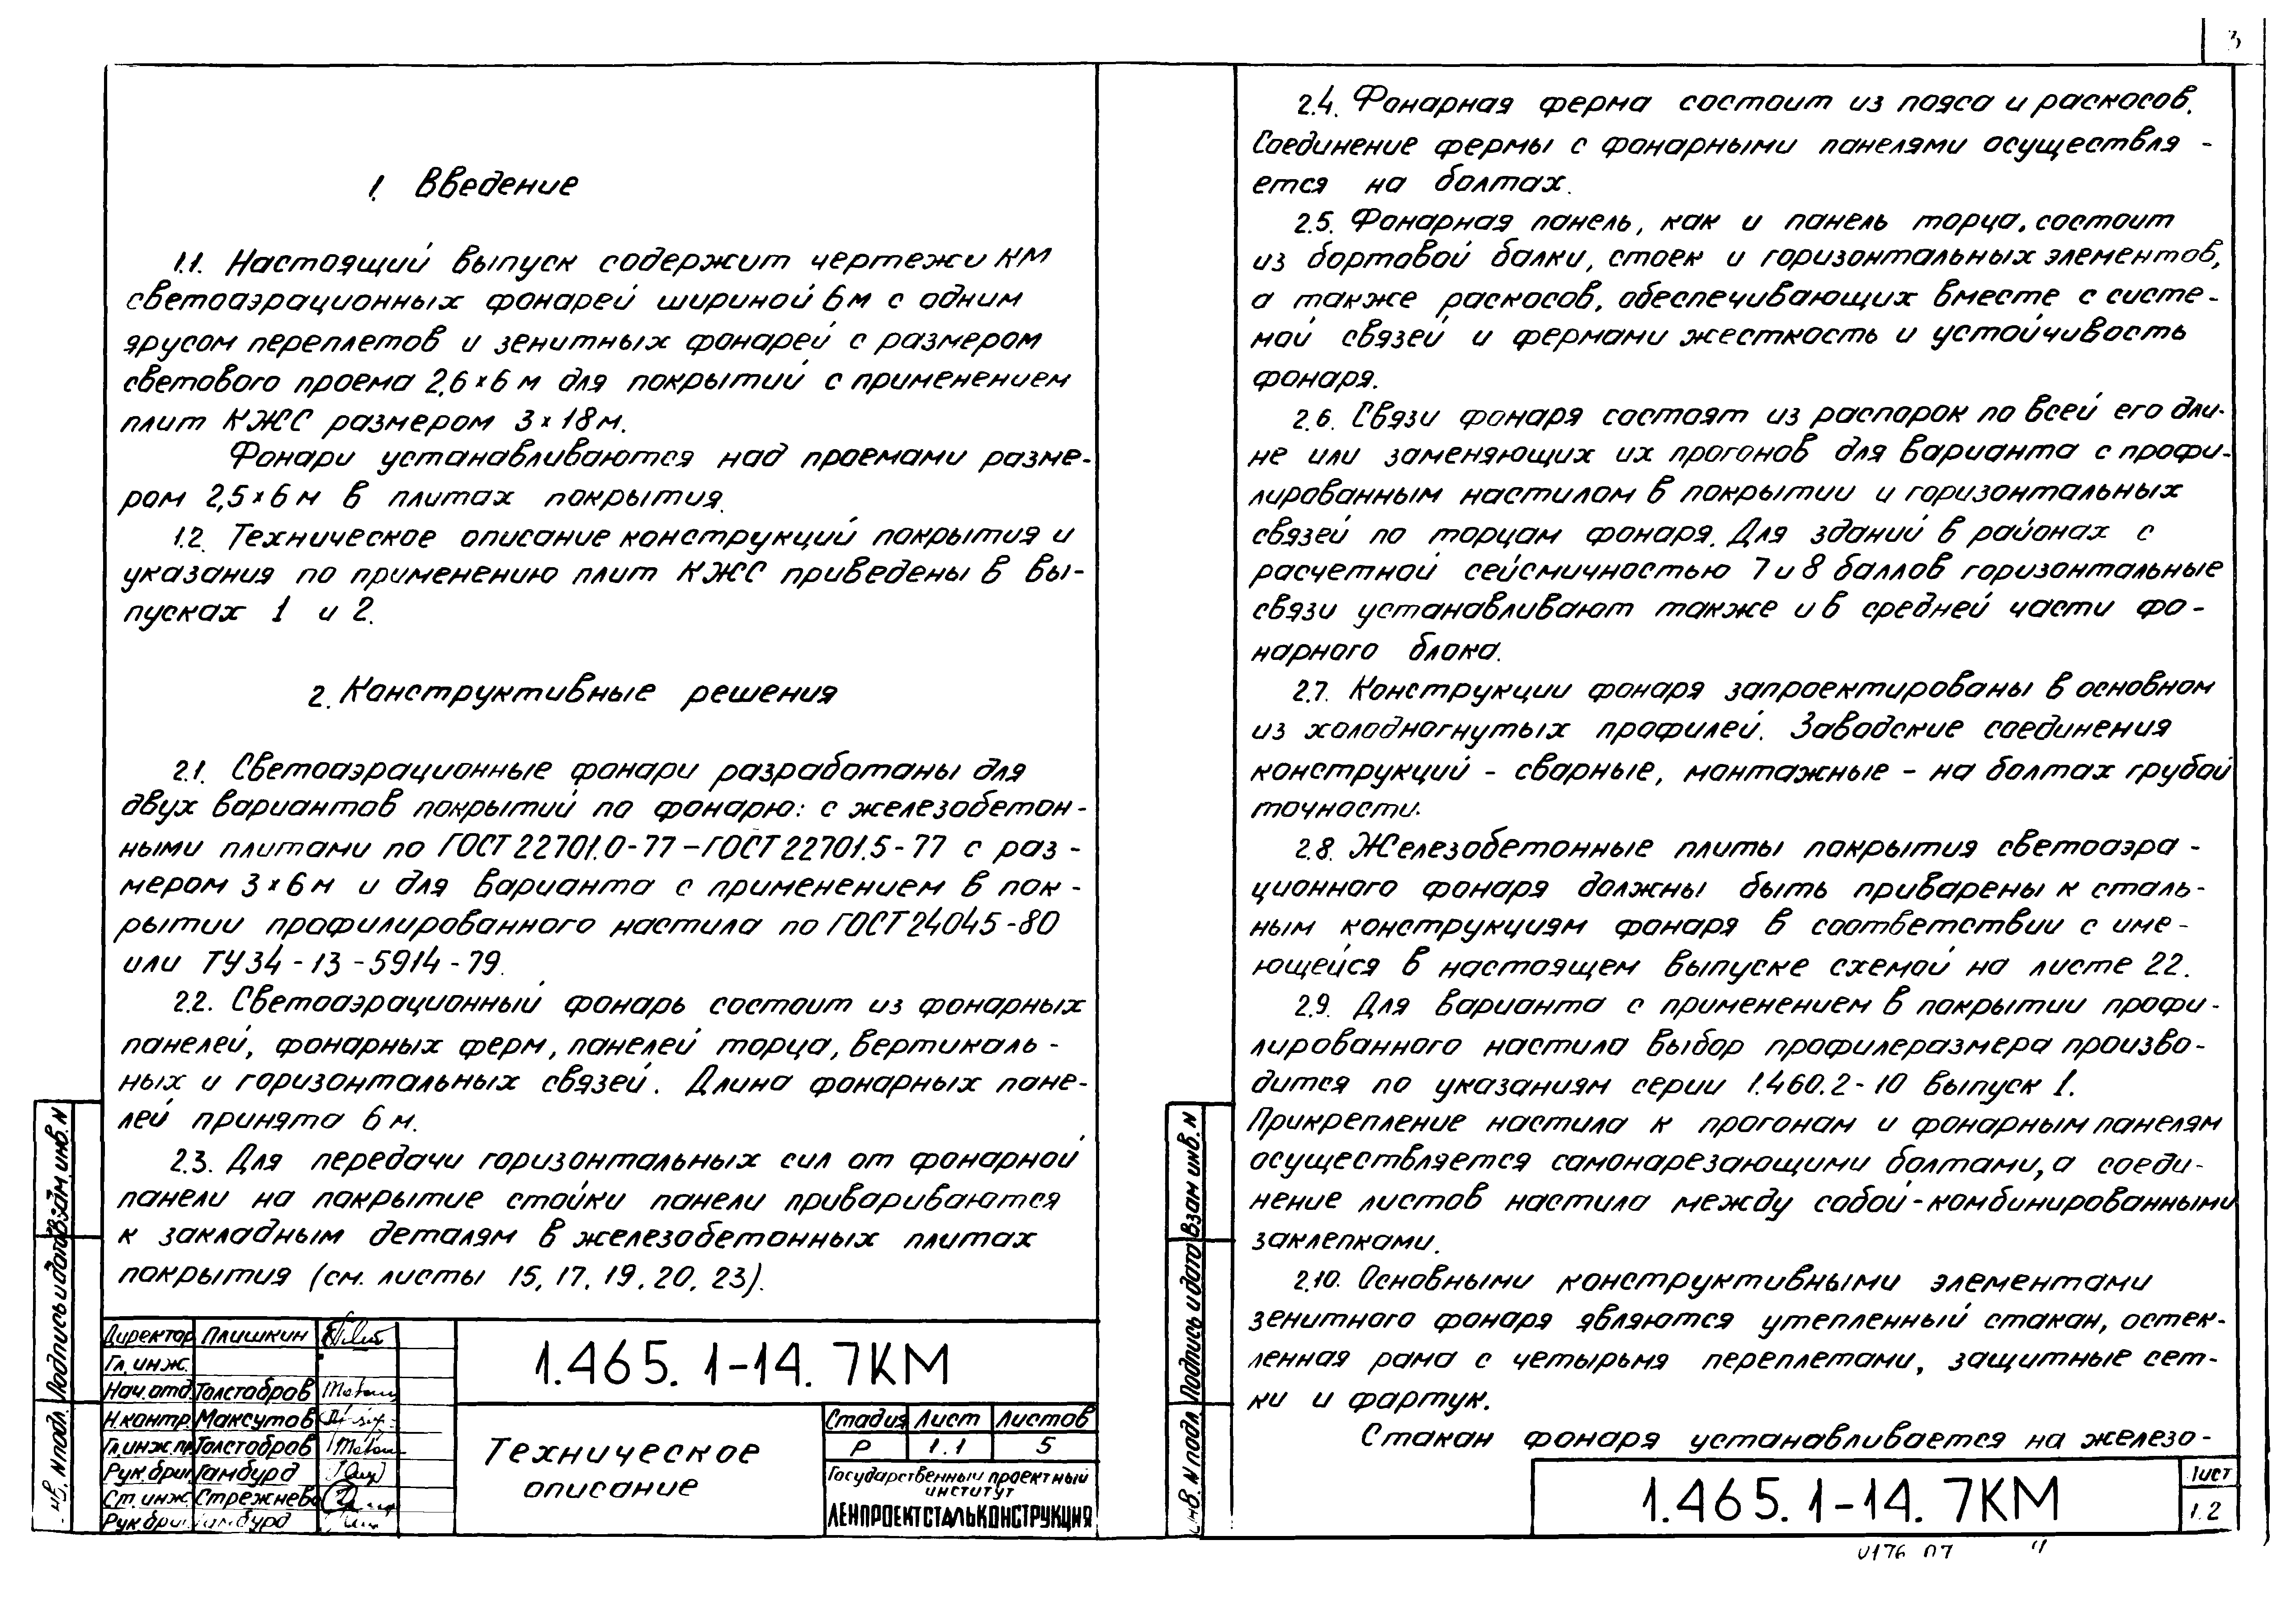 3
1. Введение
1.1. Настоящий выпуск содержит чертежи КМ
светоаэрационных фонарей шириной 6м с одним
ярусом переплетов и зенитных фонарей с размером
светового проема 2,6×6 м для покрытий с применением
плит КЖС размером 3×18м.
Фонари устанавливаются над проемами разме-
ром 2,5×6 м в плитах покрытия.
1.2. Техническое описание конструкций покрытия и
указания по применению плит КЖС приведены в вы-
пусках 1 и 2.
2. Конструктивные решения
2.1. Светоаэрационные фонари разработаны для
двух вариантов покрытий по фонарю: с железобетон-
ными плитами по ГОСТ 22701.0-77 – ГОСТ 22701.5-77 с раз-
мером 3×6 м и для варианта с применением в пок-
рытии профилированного настила по ГОСТ 24045-80
или ТУ34-13-5914-79.
2.2. Светоаэрационный фонарь состоит из фонарных
панелей, фонарных ферм, панелей торца, вертикаль-
ных и горизонтальных связей. Длина фонарных пане-
лей принята 6 м.
2.3. Для передачи горизонтальных сил от фонарной
панели на покрытие стойки панели привариваются
к закладным деталям в железобетонных плитах
покрытия (см. листы 15, 17, 19, 20, 23).
Взам. инв. N
Подпись и дата
N подл.
Директор Плишкин
Гл. инж.
Нач. отд. Толстобров
Н. контр. Максутов
Гл. инж. пр. Толстобров
Рук. бриг. Гамбурд
Ст. инж. Стрежнева
Рук. бриг. Гамбурд
1.465.1-14.7КМ
Техническое
описание
Стадия Лист Листов
Р 1.1 5
Государственный проектный
институт
ЛЕНПРОЕКТСТАЛЬКОНСТРУКЦИЯ
2.4. Фонарная ферма состоит из пояса и раскосов.
Соединение фермы с фонарными панелями осуществля-
ется на болтах.
2.5. Фонарная панель, как и панель торца, состоит
из бортовой балки, стоек и горизонтальных элементов,
а также раскосов, обеспечивающих вместе с систе-
мой связей и фермами жесткость и устойчивость
фонаря.
2.6. Связи фонаря состоят из распорок по всей его дли-
не или заменяющих их прогонов для варианта с профи-
лированным настилом в покрытии и горизонтальных
связей по торцам фонаря. Для зданий в районах с
расчетной сейсмичностью 7 и 8 баллов горизонтальные
связи устанавливают также и в средней части фо-
нарного блока.
2.7. Конструкции фонаря запроектированы в основном
из холодногнутых профилей. Заводские соединения
конструкций - сварные, монтажные - на болтах грубой
точности.
2.8. Железобетонные плиты покрытия светоаэра-
ционного фонаря должны быть приварены к сталь-
ным конструкциям фонаря в соответствии с име-
ющейся в настоящем выпуске схемой на листе 22.
2.9. Для варианта с применением в покрытии профи-
лированного настила выбор профилеразмера произво-
дится по указаниям серии 1.460.2-10 выпуск 1.
Прикрепление настила к прогонам и фонарным панелям
осуществляется самонарезающими болтами, а соеди-
нение листов настила между собой - комбинированными
заклепками.
2.10. Основными конструктивными элементами
зенитного фонаря являются утепленный стакан, остек-
ленная рама с четырьмя переплетами, защитные сет-
ки и фартук.
Стакан фонаря устанавливается на железо-
Взам инв. N
Подпись и дата
инв. N подл.
1.465.1-14.7КМ
Лист
1.2
4